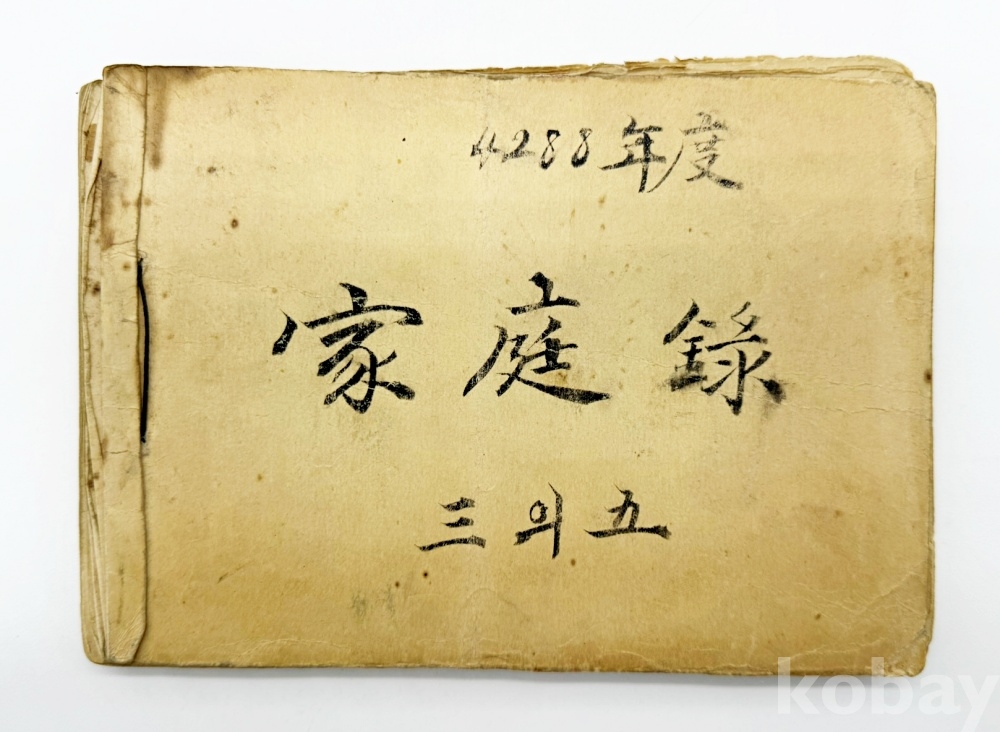 4288年度
家庭錄
三의五
kobay